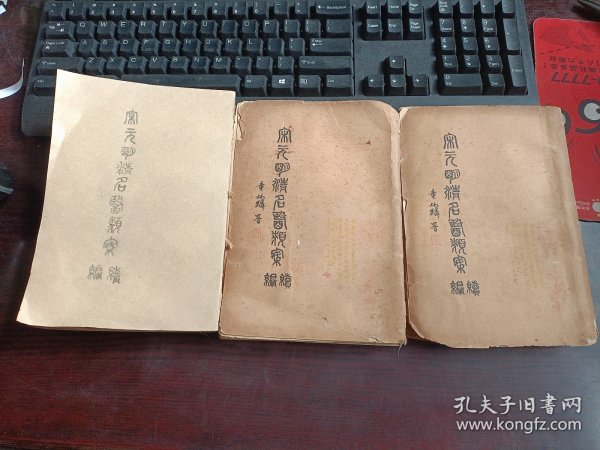 宋元明清名醫類案
續編
宋元明清名醫類案
續編
宋元明清名醫類案
續編
孔夫子旧书网
www.kongfz.com